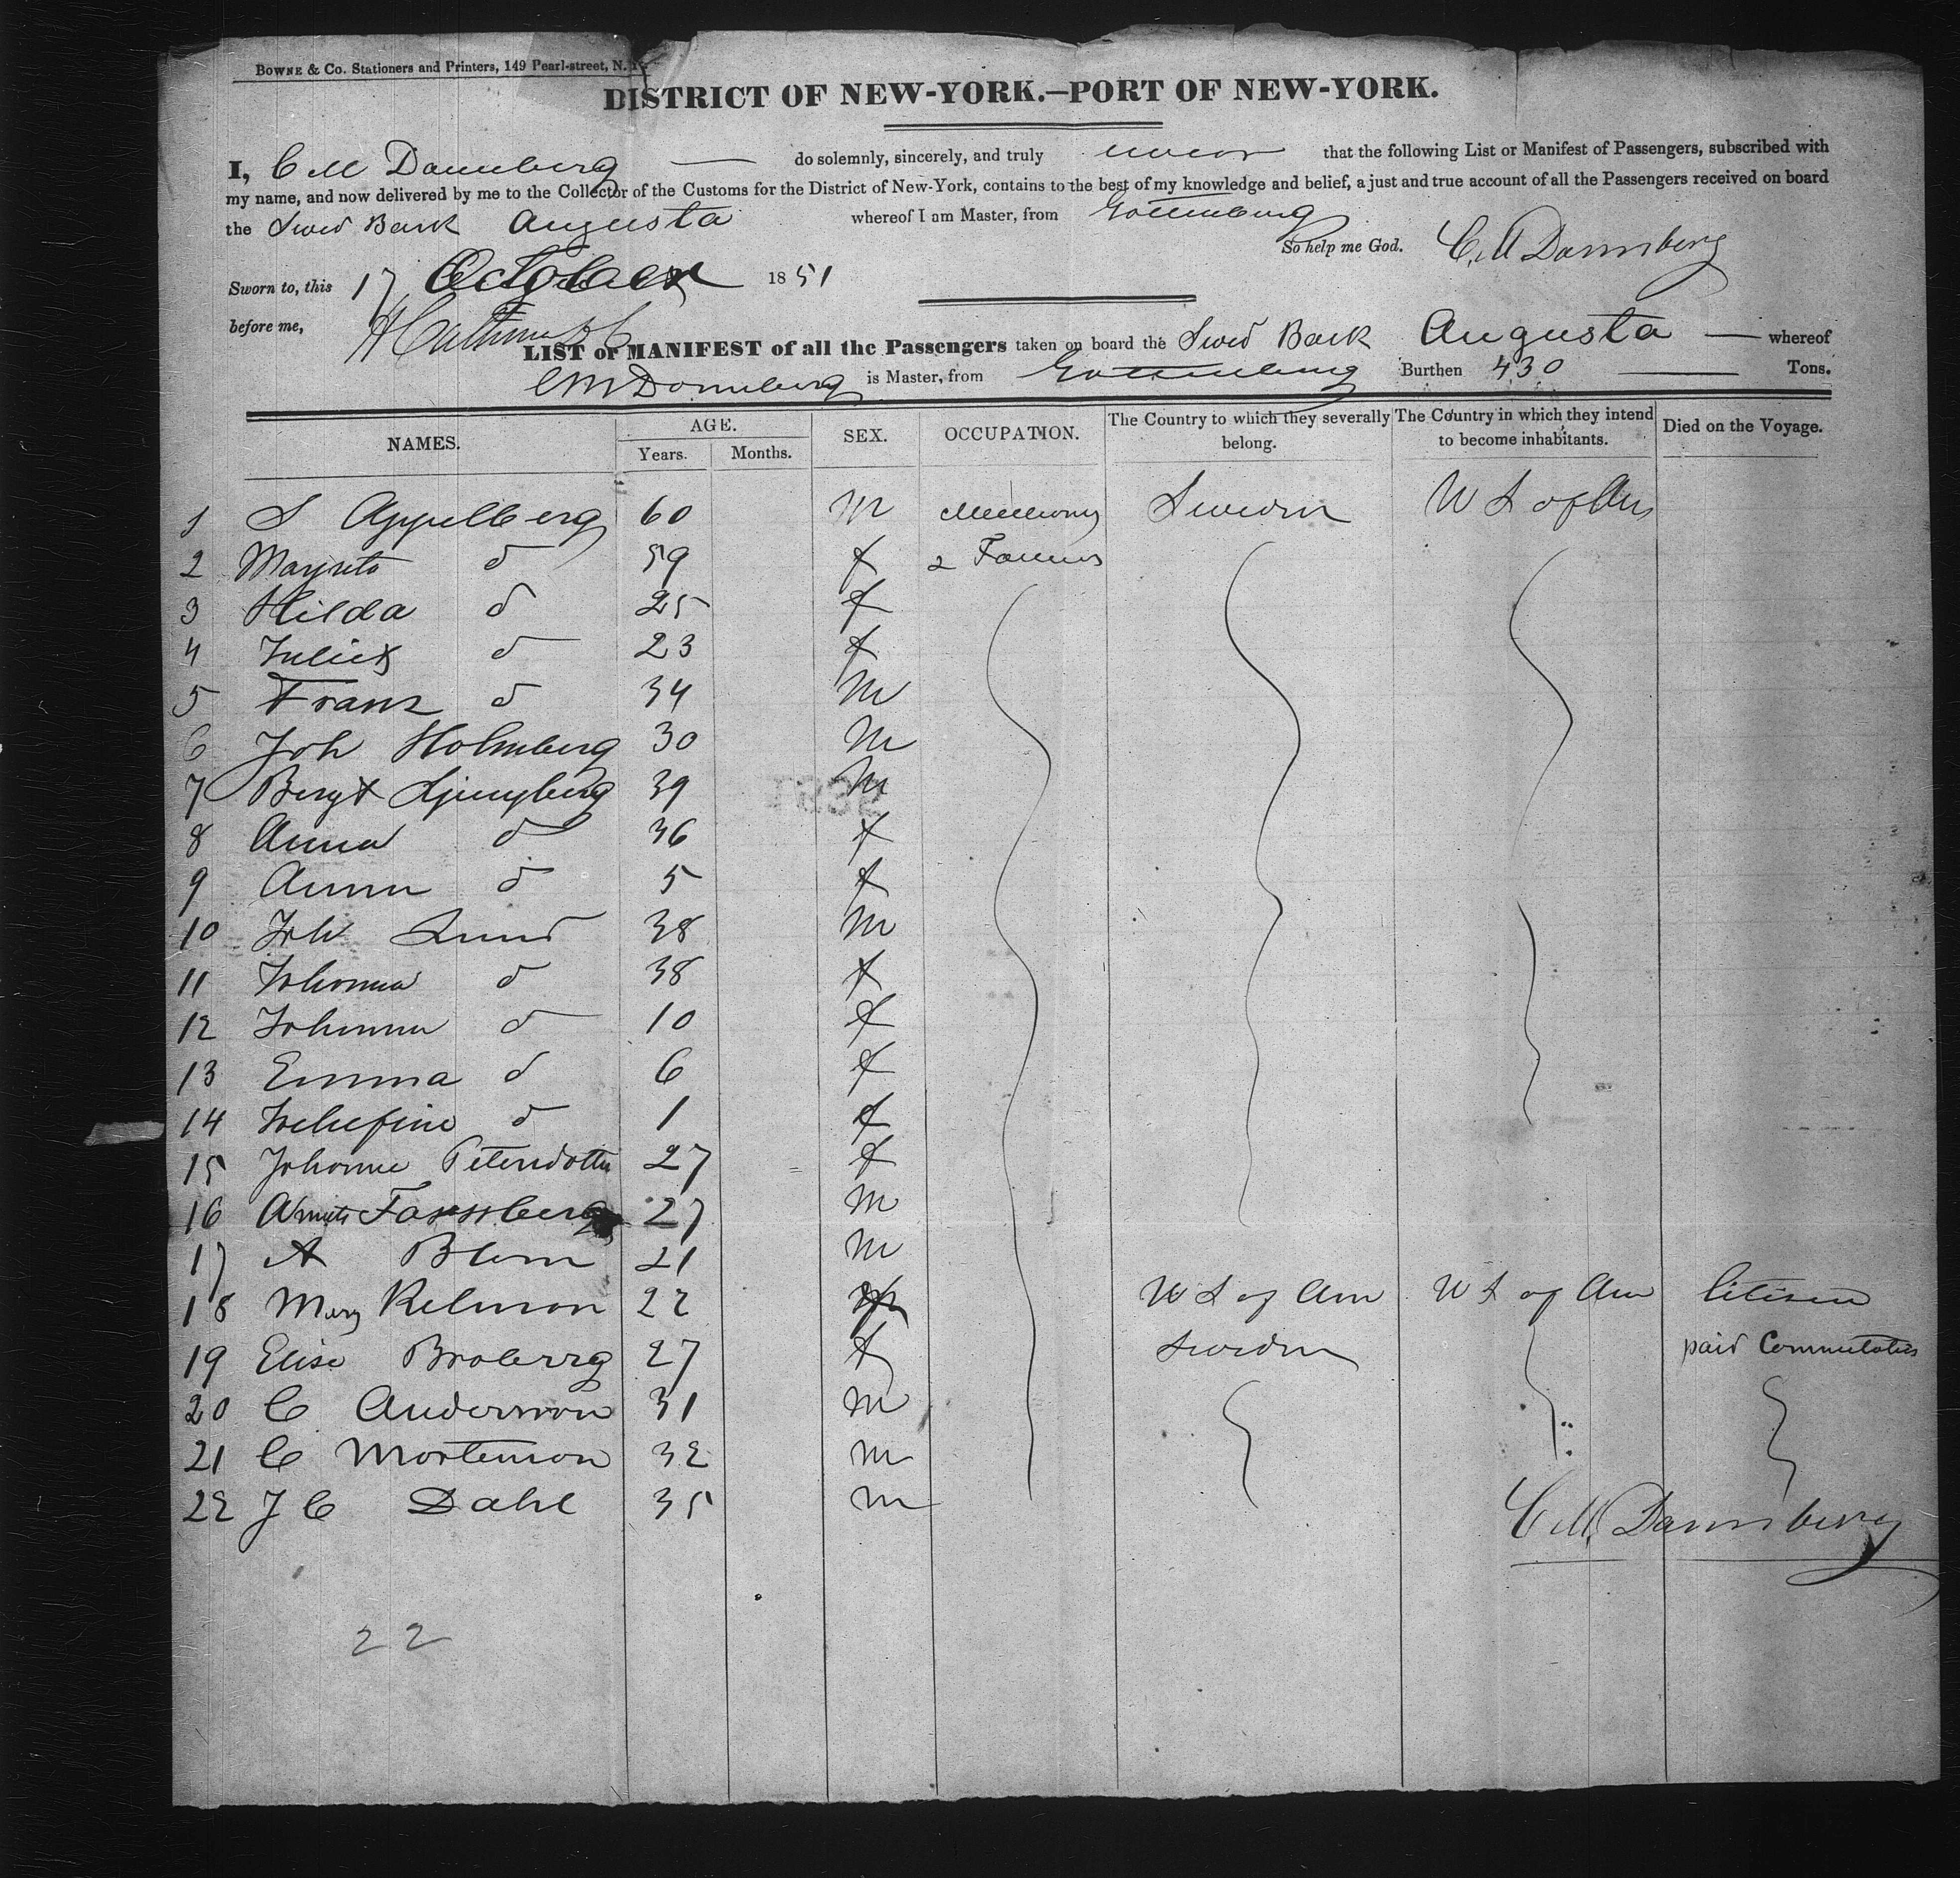 BOWNE & Co. Stationers and Printers, 149 Pearl-street, N. Y.
DISTRICT OF NEW-YORK.—PORT OF NEW-YORK.
I, C M Dannberg — do solemnly, sincerely, and truly swear that the following List or Manifest of Passengers, subscribed with
my name, and now delivered by me to the Collector of the Customs for the District of New-York, contains to the best of my knowledge and belief, a just and true account of all the Passengers received on board
the Swed Bark Augusta whereof I am Master, from Gottenburg
So help me God. C. M Dannberg
Sworn to, this 17 October 1851
before me,
LIST or MANIFEST of all the Passengers taken on board the Swed Bark Augusta — whereof
C M Dannberg is Master, from Gottenburg Burthen 430 — Tons.
NAMES. AGE. Years. Months. SEX. OCCUPATION. The Country to which they severally belong. The Country in which they intend to become inhabitants. Died on the Voyage.
1 S Appelberg 60 M Sweden U S of Am
2 d 59 f Farmers
3 Hilda d 25 f
4 d 23 f
5 Frans d 34 M
6 Joh Holmberg 30 M
7 Bengt Ljungberg 39 M
8 Anna d 36 f
9 Anna d 5 f
10 Joh Lund 38 M
11 Johanna d 38 f
12 Johanna d 10 f
13 Emma d 6 f
14 d 1 f
15 Johanne Petersdotter 27 f
16 Forssberg 27 M
17 A Blom 21 M
18 Mary 22 U S of Am U S of Am Citizen
19 Elise Broberrg 27 f Sweden paid Commutation
20 C Andersson 31 M
21 C Mortenson 32 M
22 J C Dahl 35 M
C M. Dannberg
22